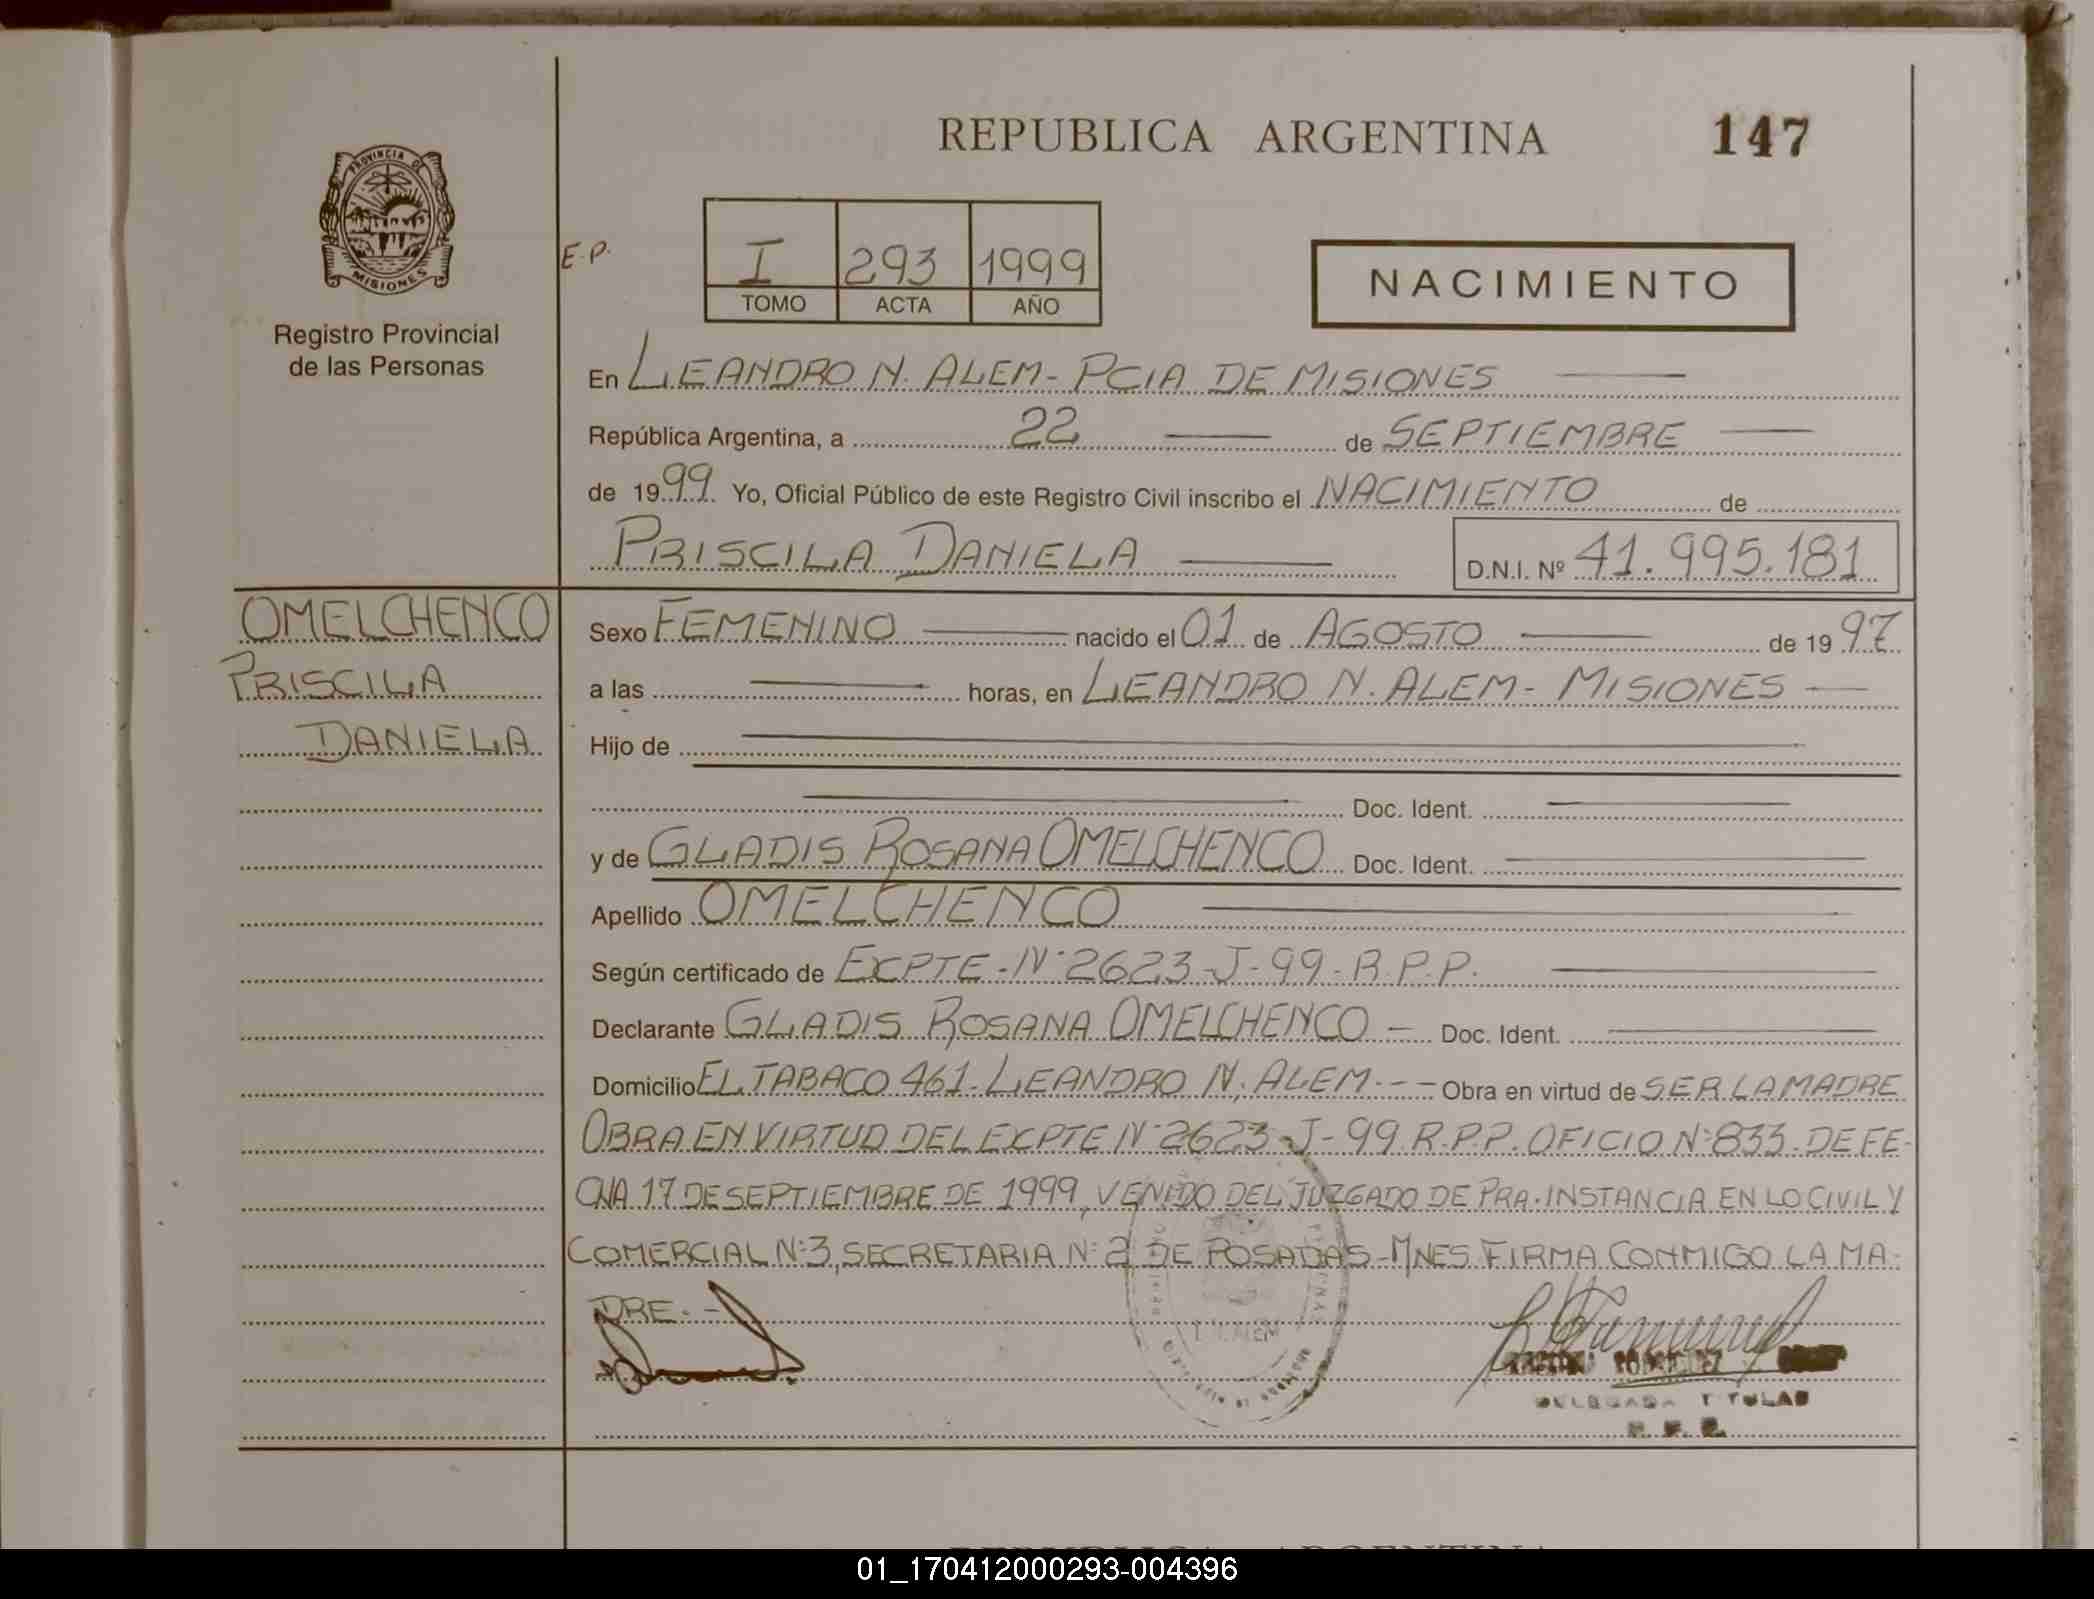 REPUBLICA ARGENTINA 147
PROVINCIA DE
MISIONES
Registro Provincial
de las Personas
E.P.
I 293 1999
TOMO ACTA AÑO
NACIMIENTO
En LEANDRO N. ALEM - PCIA DE MISIONES
República Argentina, a 22 de SEPTIEMBRE
de 1999 Yo, Oficial Público de este Registro Civil inscribo el NACIMIENTO de
PRISCILA DANIELA D.N.I. Nº 41.995.181
OMELCHENCO
PRISCILA
DANIELA
Sexo FEMENINO nacido el 01 de AGOSTO de 1997
a las horas, en LEANDRO N. ALEM - MISIONES
Hijo de
Doc. Ident.
y de GLADIS ROSANA OMELCHENCO Doc. Ident.
Apellido OMELCHENCO
Según certificado de EXPTE - Nº 2623 - J - 99 - R.P.P.
Declarante GLADIS ROSANA OMELCHENCO - Doc. Ident.
Domicilio EL TABACO 461 - LEANDRO N. ALEM - - - Obra en virtud de SER LA MADRE
OBRA EN VIRTUD DEL EXPTE Nº 2623 - J - 99 R.P.P. OFICIO Nº 833 - DE FE-
CHA 17 DE SEPTIEMBRE DE 1999, VENIDO DEL JUZGADO DE PRA. INSTANCIA EN LO CIVIL Y
COMERCIAL Nº 3, SECRETARIA Nº 2 DE POSADAS - MNES FIRMA CONMIGO LA MA-
DRE. -
L. N. ALEM
DELEGADA TITULAR
REPUBLICA ARGENTINA
01_170412000293-004396